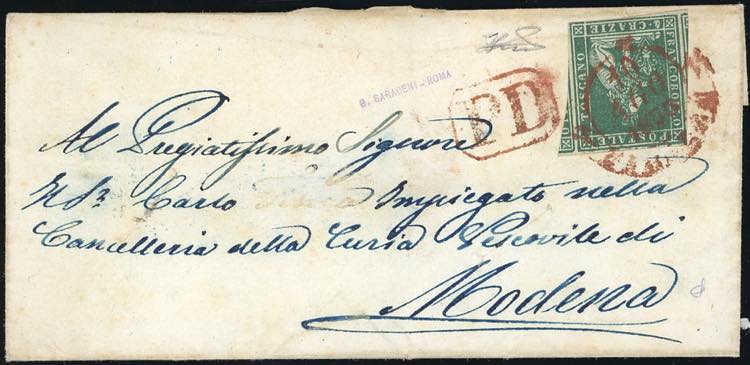 FRANCOBOLLO
POSTALE
TOSCANO
4. CRAZIE
B. SARACENI - ROMA
PD
Al Pregiatissimo Signore
Il Sr. Carlo Impiegato nella
Cancelleria della Curia Vescovile di
Modena